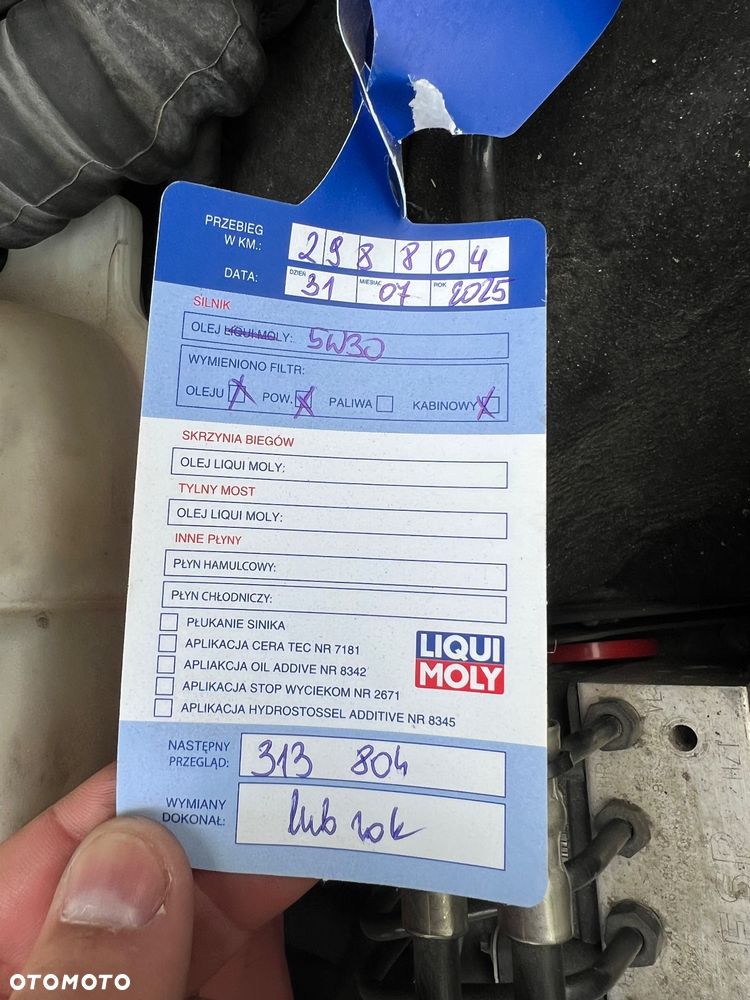 PRZEBIEG
W KM.: 298 804
DATA: DZIEŃ 31 MIESIĄC 07 ROK 2025
SILNIK
OLEJ LIQUI MOLY: 5W30
WYMIENIONO FILTR:
OLEJU X POW. X PALIWA KABINOWY X
SKRZYNIA BIEGÓW
OLEJ LIQUI MOLY:
TYLNY MOST
OLEJ LIQUI MOLY:
INNE PŁYNY
PŁYN HAMULCOWY:
PŁYN CHŁODNICZY:
PŁUKANIE SINIKA
APLIKACJA CERA TEC NR 7181
APLIAKCJA OIL ADDIVE NR 8342
APLIKACJA STOP WYCIEKOM NR 2671
APLIKACJA HYDROSTOSSEL ADDITIVE NR 8345
LIQUI
MOLY
NASTĘPNY
PRZEGLĄD: 313 804
WYMIANY
DOKONAŁ: lub rok
OTOMOTO